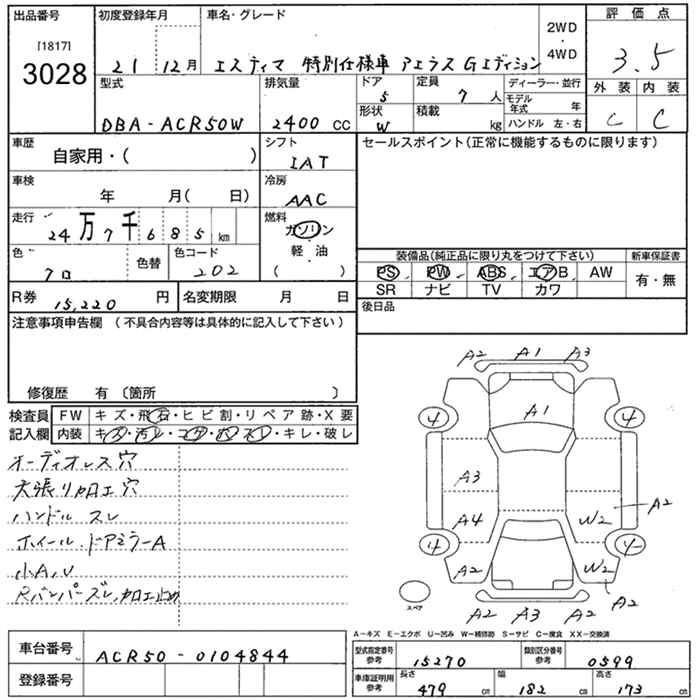 出品番号 初度登録年月 車名・グレード 評価点
[1817]
3028
21 12月 エスティマ 特別仕様車 アエラス Gエディション 2WD ・ 4WD 3.5
型式 排気量 ドア 定員 ディーラー・並行 外装 内装
5 7人 モデル年式 年
DBA-ACR50W 2400 CC 形状 W 積載 kg ハンドル 左・右 C C
車歴 シフト セールスポイント(正常に機能するものに限ります)
自家用・( ) IAT
車検 冷房
年 月( 日) AAC
走行 燃料
24万7千685 km ガソリン
軽・油
色 色替 色コード ・ 装備品(純正品に限り丸をつけて下さい) 新車保証書
クロ 202 ( ) PS PW ABS エアB AW 有・無
SR ナビ TV カワ
R券 15,220 円 名変期限 月 日 後日品
注意事項申告欄 (不具合内容等は具体的に記入して下さい)
修復歴 有 〔箇所 〕
検査員記入欄 FW キズ・飛石・ヒビ割・リペア跡・X要
内装 キズ・汚レ・コゲ・穴・スレ・キレ・破レ
オーディオレス穴
天張リ加工穴
ハンドル スレ
ホイール.ドアミラーA
小A,U
Rバンパーズレ,加工止め
A2 A1 A3
A1
4 4
A3
A4 W2 A2
4 4
A2 W2
A2 A3 A2 A2
スペア
A-キズ E-エクボ U-凹み W-補修跡 S-サビ C-腐食 XX-交換済
車台番号 ACR50-0104844
登録番号
型式指定番号 参考 15270 類別区分番号 参考 0599
車庫証明用 参考 長さ 479 cm 幅 182 cm 高さ 173 cm